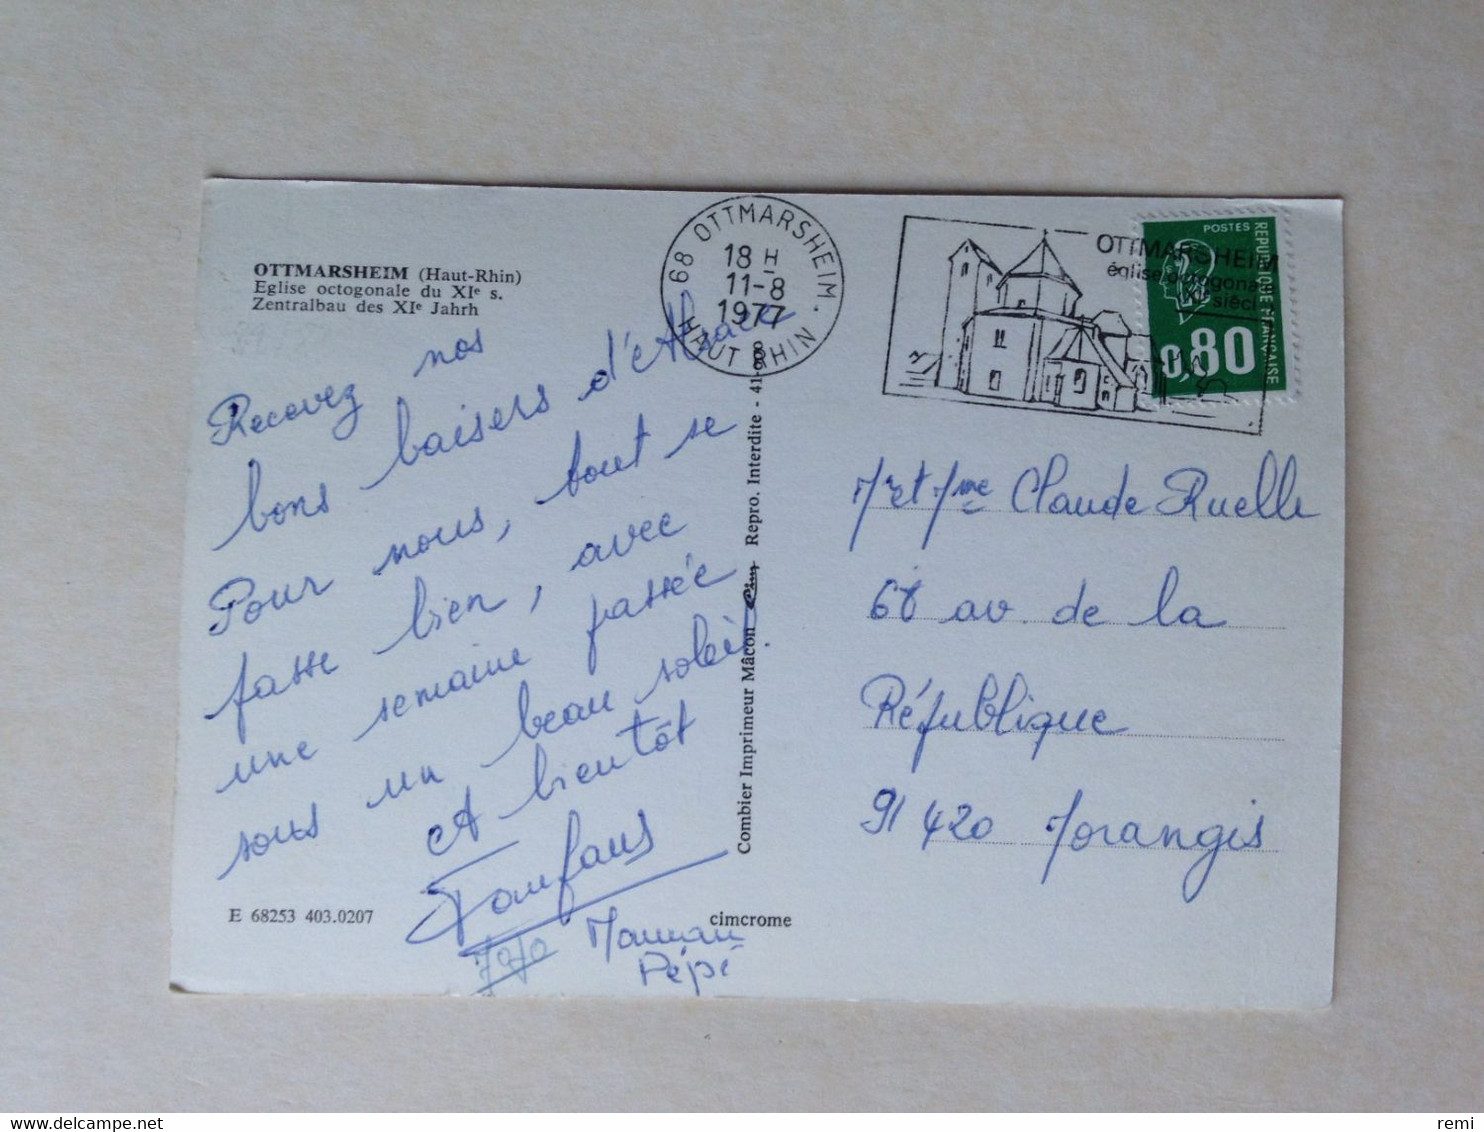 OTTMARSHEIM (Haut-Rhin)
Eglise octogonale du XIe s.
Zentralbau des XIe Jahrh
68 OTTMARSHEIM.
18 H
11-8
1977
HAUT RHIN
OTTMARSHEIM
église octogonale
XIe siècle
POSTES
REPUBLIQUE FRANÇAISE
0,80
Recevez nos
bons baisers d'Alsace
Pour nous, tout se
passe bien, avec
une semaine passée
sous un beau soleil.
A bientôt
Fanfans
Jojo Maman
Pépé
Combier Imprimeur Mâcon Cim Repro. Interdite - 41-08
Mr et Mme Claude Ruelle
68 av. de la
République
91 420 Morangis
E 68253 403.0207
cimcrome
delcampe.net
remi